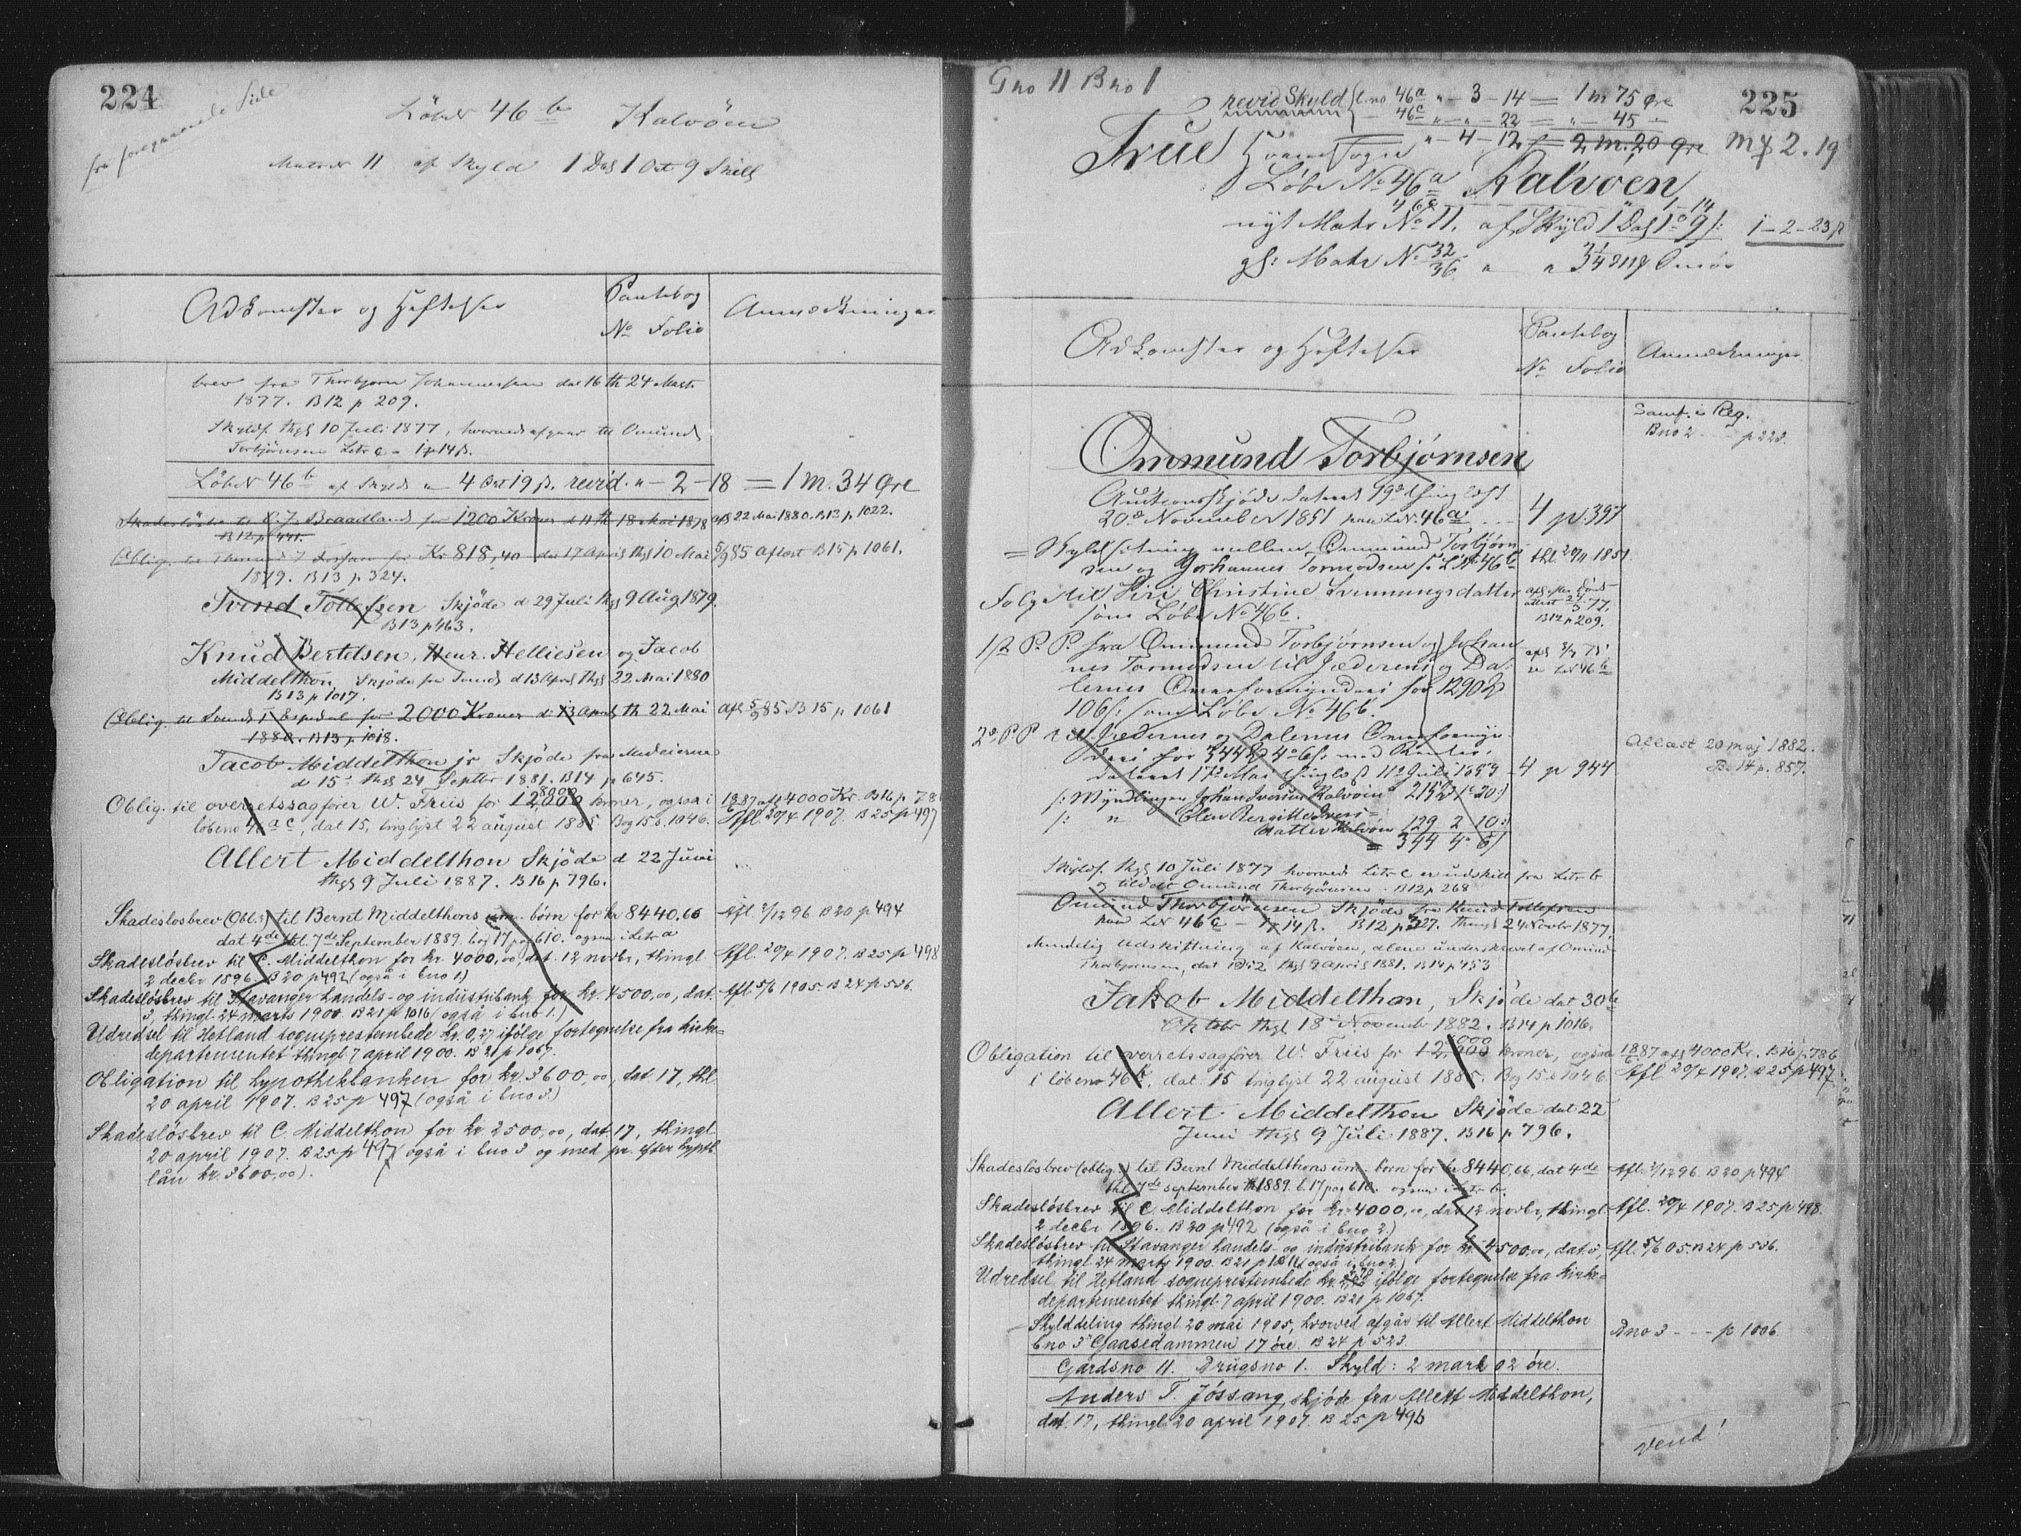 224
fra foregaaende Side
Løbe N 46 b Kalvöen
Matr N 11 af Skyld 1 Dal 1 Ort 9 Skill
Adkomster og Heftelser
Pantebog
No Folio
Anmærkninger
brev fra Thorbjørn Johannessen dat 16 th 24 Marts
1877. B12 p 209.
Skyldf. thgl 10 Juli 1877, hvorved afgaar til Omund
Torbjörnsen Litr c - 1 14 ß.
Løbe N 46 b af Skyld " 4 Ort 19 ß. revid. " - 2 - 18 = 1 m. 34 Øre
Skadesløsbr til Braadland for 1200 Kroner d 11 th 18 Mai 1878 afl 22 Mai 1880. B13 p 1022.
B12 p 441.
Oblig. til for Kr 818,40 dat 17 April thgl 10 Mai 5/9 85 aflæst B15 p 1061.
1879. B13 p. 324.
Svend Tollefsen Skjøde d 29 Juli thgl 9 Aug 1879.
B13 p 463.
Knud Bertelsen, Henr. Helliesen og Jacob
Middelthon, Skjøde fra Svend d 13 April thgl 22 Mai 1880
B13 p 1017.
Oblig. til Svend T Espedal for 2000 Kroner d 13 April th 22 Mai afl 5/9 85 B 15 p 1061
1880. B13 p 1018.
Jacob Middelthon jr Skjøde fra Medeierne
d 15 thgl 24 Septbr 1881. B14 p 645.
Oblig. til overretssagfører W. Friis for 12,000 8000 kroner, ogsaa i 1887 afl 4000 Kr. B16 p 786
løbeno 46 a c, dat 15, tinglyst 22 august 1885 Bog 15 s. 1046. Afl 20/4 1907. B25 p 497
Allert Middelthon Skjøde d 22 Juni
thgl 9 Juli 1887. B16 p 796.
Skadesløsbrev (Obl.) til Bernt Middelthons um. børn for kr 8440,66 Afl. 2/12 96 B30 p 494
dat 4de thl. 7de September 1889. bog 17 pag 610. ogsaa i Litr a
Skadesløsbrev til C. Middelthon for kr. 4000,00, dat. 12 novbr, thingl Afl. 20/4 1907. B25 p 498
2 decbr 1896. B20 p 492 (også i bno 1.)
Skadesløsbrev til Stavanger handels- og industribank for kr. 4500,00, dat. Afl 5/6 1905. B24 p 536.
3, thingl. 24 marts 1900. B21 p 1016 (også i bno 1.)
Udredsel til Hetland sogneprestembede kr. 0,27 ifølge fortegnelse fra kirke=
departementet thingl 7 april 1900. B21 p 1067.
Obligation til hypothekbanken for kr. 3600,00, dat 17, thl
20 april 1907. B25 p 497 (også i bno 3.)
Skadesløsbrev til C. Middelthon for kr 2500,00, dat 17, thingl
20 april 1907. B25 p 497 også i bno 3 og med pr. efter hypth
lån kr. 3600,00).
Gno 11 Bno 1
225
revid Skyld l. no 46 a " - 3 - 14 = 1 m 75 Øre
46 c " - " - 22 = " - 45 "
" - 4 - 12 = 2 m. 20 Øre
M 2.19
Frue Sogn
Løbe No 46 a Kalvøen
46 c 1-14
nyt Matr No 11. af Skyld 1 Dal 1 o 9 ß: 1-2-23 ß
gl: Matr No 32/36 " " 3 1/4
Adkomster og Heftelser
Pantebog
No Folio
Anmærkninger
Samf. i Reg.
Bno 2 p 223.
Ommund Torbjørnsen
Auctionsskjøde dateret 19de thinglæst
20de November 1851 paa LN: 46 a. 4 p. 397
= Skyldsetning mellem Ommund Torbjørn-
sen og Johannes Tormodsen f. L No 46 b thl. 20/11 1851
Følg til Siri Christine Svenningsdatter
som Løbe No 46 b.
B12 p 209.
1ste P. P. fra Ommund Torbjørnsen og Johan
nes Tormodsen til Jæderens og Da-
lernes Overformynderi for 1290
10 ß: som Løbe No 46 b.
2de P P til Jædernes og Dalernes Overformyn
deri for 344 4 o 6 ß. med Renter,
dateret 17de Mai thinglæst 11te Juli 4 p 944
/: Myndlingen Johan Iversen Kalvøen 215 1 20:/
/: " Olea Bergitte Ivers=
datter Kalvøen 129 2 10:/
= 344 4 6/
Aflæst 20 maj 1882.
B. 14 p. 857.
Skyldf. thgl 10 Juli 1877 hvorved Litr c er udskilt fra Litr b
og tildelt Omund Thorbjörnsen. B12 p 268
Omund Thorbjörnsen Skjøde fra Knud Tollefsen
paa LN 46 c - 1 14 ß. B12 p 327. thingl 24 Novbr 1877.
Mindelig Udskiftning af Kalvøen, alene underskrevet af Omund
Thorbjørnsen, dat 1852 thgl 9 April 1881. B14 p 453
Jakob Middelthon, Skjøde dat 30te
Oktobr thgl 18 November 1882. B14 p 1016.
Obligation til overretssagfører W. Friis for 12,000 kroner, ogsaa 1887 afl 4000 Kr. B16 p. 786
i løbeno 46 b, dat. 15 tinglyst 22 august 1885. Bog 15 s 1046. Afl 20/4 1907. B25 p 497
Allert Middelthon Skjøde dat 22
Juni thgl 9 Juli 1887. B16 p 796.
Skadesløsbrev (oblig.) til Bernt Middelthons um. børn for kr 8440,66, dat 4de Afl. 2/12 96 B20 p 494
thl. 7de september 1889. b. 17 pag 610. ogsaa i Litr b.
Skadesløsbrev til C. Middelthon for kr. 4000,00, dat 12 novbr, thingl Afl. 20/4 1907. B25 p 498.
2 decbr 1896. B20 p 492 (også i bno 2.)
Skadesløsbrev til Stavanger handels- og industribank for kr. 4500,00, dat. 3, Afl. 5/6 05. B24 p 536.
thingl 24 marts 1900. B21 p 1016 (også i bno 2.)
Udredsel til Hetland sogneprestembede kr. ifølge fortegnelse fra kirke=
departementet thingl. 7 april 1900. B21 p 1067.
Skylddeling thingl. 20 mai 1905, hvorved afgår til Allert Middelthon
bno 3 Gaasedammen 17 øre. B24 p 523. Bno 3 - - - p 1006.
Gårdsno 11. Brugsno 1. Skyld: 2 mark 02 øre.
Anders T. Jøssang, skjøde fra Allert Middelthon,
dat. 17, thingl 20 april 1907. B25 p 496
Vend!